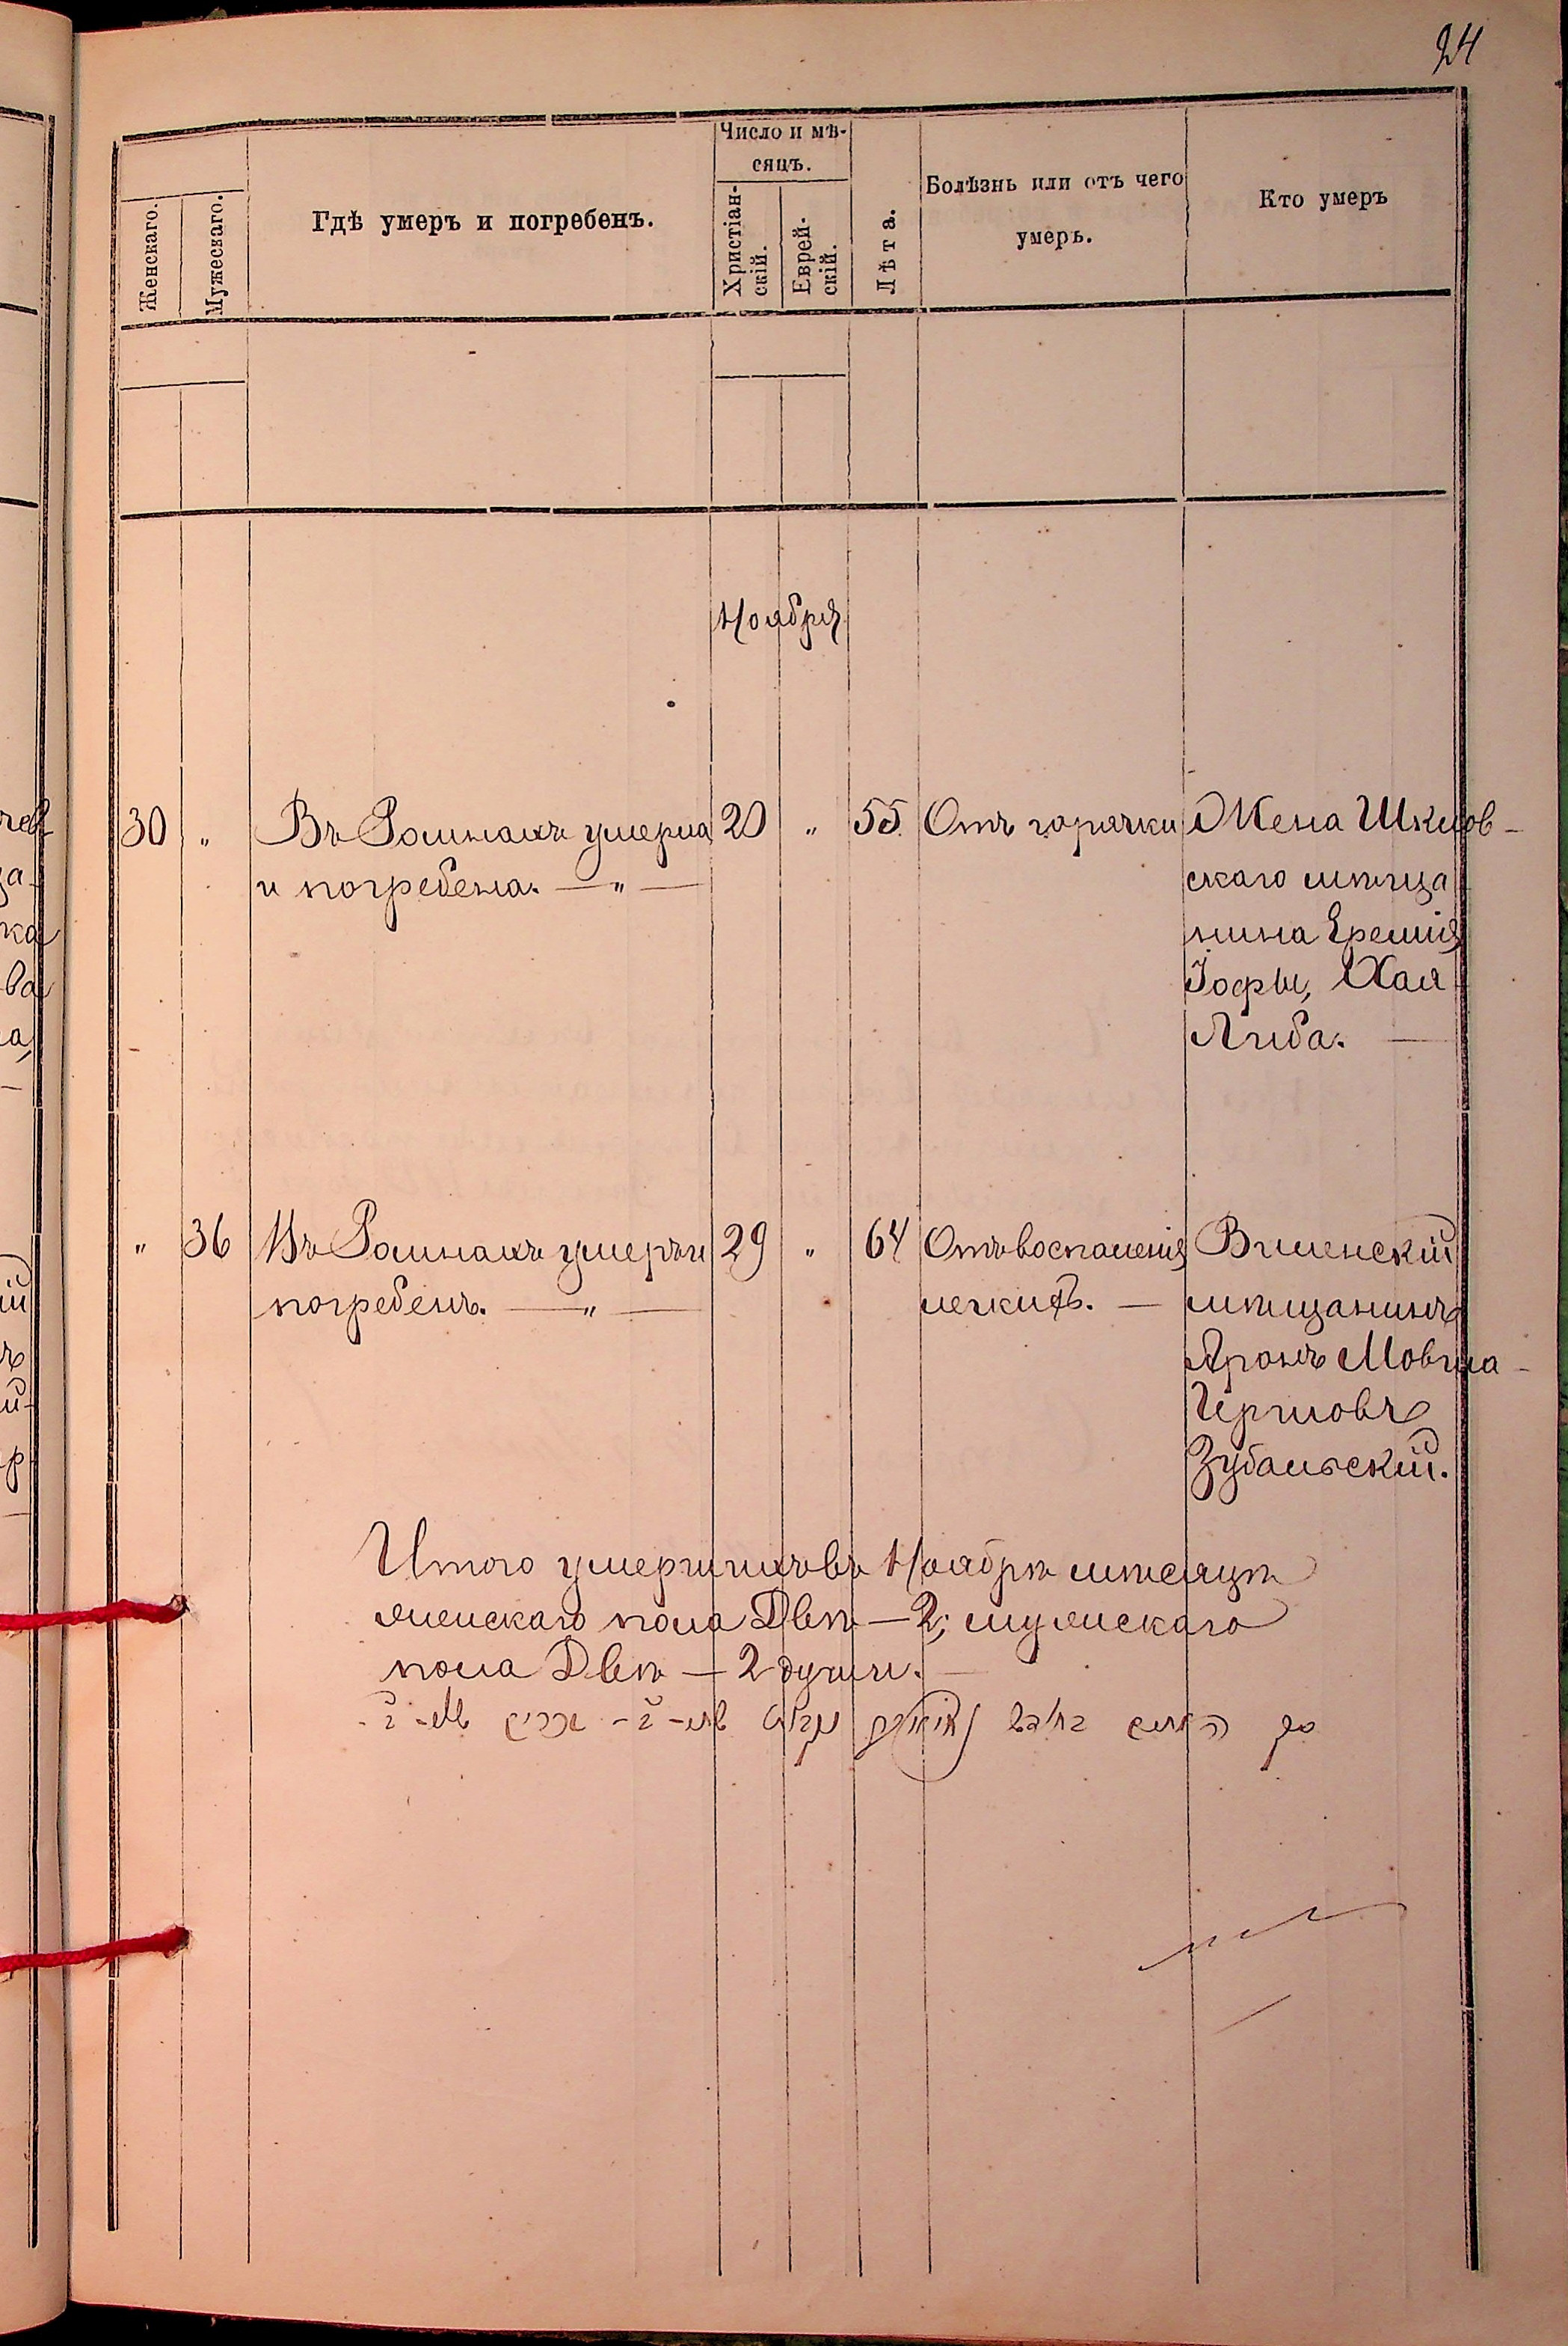 24
Число и мѣ-
сяцъ.
Женскаго.
Мужескаго.
Гдѣ умеръ и погребенъ.
Христіан-
скій.
Еврей-
скій.
Лѣта.
Болѣзнь или отъ чего
умеръ.
Кто умеръ
Ноября
30 „ Въ Ромнахъ умерла 20 „ 55 Отъ горячки Жена Шклов-
и погребена. — „ — скаго мѣща
нина Еремія
Іофы, Хая
Либа. —
„ 36 Въ Ромнахъ умеръ и 29 „ 64 Отъ воспаленія Виленскій
погребенъ. — „ — легкихъ. — мѣщанинъ
Аронъ Мовша-
Гершовъ
Зубальскій.
Итого умершихъ въ Ноябрѣ мѣсяцѣ
женскаго пола Двѣ — 2; мужескаго
пола Двѣ — 2 души. —